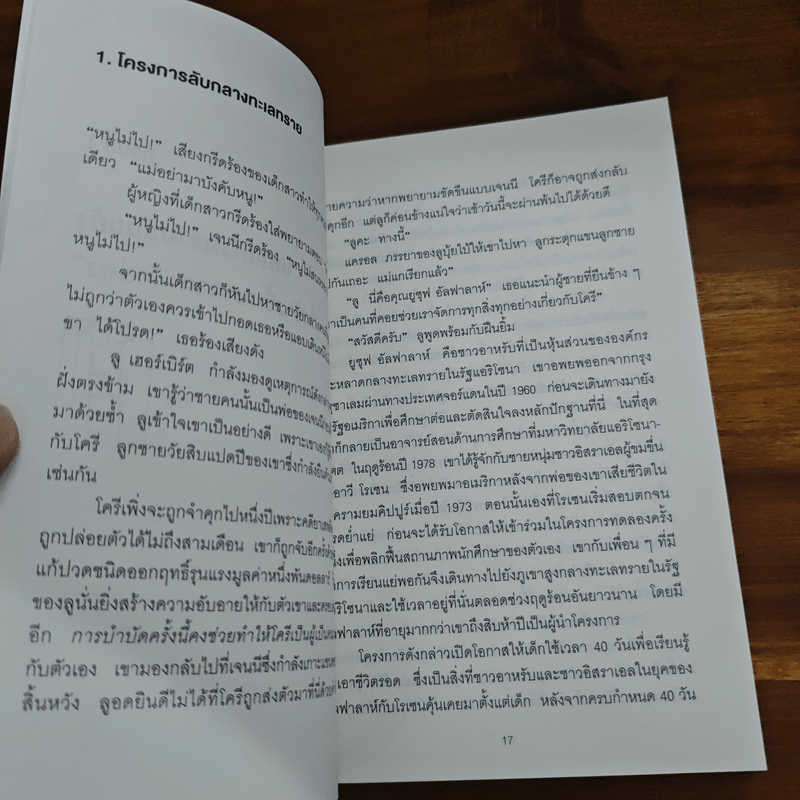 1. โครงการลับกลางทะเลทราย
“หนูไม่ไป!” เสียงกรีดร้องของเด็กสาวทำให้
เดียว “แม่อย่ามาบังคับหนู!”
ผู้หญิงที่เด็กสาวกรีดร้องใส่พยายามตอบ
“หนูไม่ไป!” เจนนีกรีดร้อง “หนูไม่
หนูไม่ไป!”
จากนั้นเด็กสาวก็หันไปหาชายวัยกลางคน
ไม่ถูกว่าตัวเองควรเข้าไปกอดเธอหรือแอบเดิน
ขา ได้โปรด!” เธอร้องเสียงดัง
ลู เฮอร์เบิร์ต กำลังมองดูเหตุการณ์
ฝั่งตรงข้าม เขารู้ว่าชายคนนั้นเป็นพ่อของเจนนี
มาด้วยซ้ำ ลูเข้าใจเขาเป็นอย่างดี เพราะเขาเอง
กับโครี ลูกชายวัยสิบแปดปีของเขาซึ่งกำลังยืน
เช่นกัน
โครีเพิ่งจะถูกจำคุกไปหนึ่งปีเพราะคดียาเสพ
ถูกปล่อยตัวได้ไม่ถึงสามเดือน เขาก็ถูกจับอีกครั้ง
แก้ปวดชนิดออกฤทธิ์รุนแรงมูลค่าหนึ่งพันดอลลาร์
ของลูนั่นยิ่งสร้างความอับอายให้กับตัวเขาและครอบ
อีก การบำบัดครั้งนี้คงช่วยทำให้โครีเป็นผู้เป็น
กับตัวเอง เขามองกลับไปที่เจนนีซึ่งกำลังเกาะแขน
สิ้นหวัง ลูอดยินดีไม่ได้ที่โครีถูกส่งตัวมาที่นี่ด้วย
ายความว่าหากพยายามขัดขืนแบบเจนนี โครีก็อาจถูกส่งกลับ
คุกอีก แต่ลูก็ค่อนข้างแน่ใจว่าเช้าวันนี้จะผ่านพ้นไปได้ด้วยดี
“ลูคะ ทางนี้”
แครอล ภรรยาของลูบุ้ยใบ้ให้เขาไปหา ลูกระตุกแขนลูกชาย
ปกันเถอะ แม่แกเรียกแล้ว”
“ลู นี่คือคุณยูซุฟ อัลฟาลาห์” เธอแนะนำผู้ชายที่ยืนข้าง ๆ
าเป็นคนที่คอยช่วยเราจัดการทุกสิ่งทุกอย่างเกี่ยวกับโครี”
“สวัสดีครับ” ลูพูดพร้อมกับฝืนยิ้ม
ยูซุฟ อัลฟาลาห์ คือชาวอาหรับที่เป็นหุ้นส่วนขององค์กร
ะหลาดกลางทะเลทรายในรัฐแอริโซนา เขาอพยพออกจากกรุง
ซาเลมผ่านทางประเทศจอร์แดนในปี 1960 ก่อนจะเดินทางมายัง
รัฐอเมริกาเพื่อศึกษาต่อและตัดสินใจลงหลักปักฐานที่นี่ ในที่สุด
ก็กลายเป็นอาจารย์สอนด้านการศึกษาที่มหาวิทยาลัยแอริโซนา-
ตต ในฤดูร้อนปี 1978 เขาได้รู้จักกับชายหนุ่มชาวอิสราเอลผู้ขมขื่น
อาวี โรเซน ซึ่งอพยพมาอเมริกาหลังจากพ่อของเขาเสียชีวิตใน
ครามยมคิปปูร์เมื่อปี 1973 ตอนนั้นเองที่โรเซนเริ่มสอบตกจน
รดย่ำแย่ ก่อนจะได้รับโอกาสให้เข้าร่วมในโครงการทดลองครั้ง
งเพื่อพลิกฟื้นสถานภาพนักศึกษาของตัวเอง เขากับเพื่อน ๆ ที่มี
การเรียนแย่พอกันจึงเดินทางไปยังภูเขาสูงกลางทะเลทรายในรัฐ
ริโซนาและใช้เวลาอยู่ที่นั่นตลอดช่วงฤดูร้อนอันยาวนาน โดยมี
ฟาลาห์ที่อายุมากกว่าเขาถึงสิบห้าปีเป็นผู้นำโครงการ
โครงการดังกล่าวเปิดโอกาสให้เด็กใช้เวลา 40 วันเพื่อเรียนรู้
เอาชีวิตรอด ซึ่งเป็นสิ่งที่ชาวอาหรับและชาวอิสราเอลในยุคของ
ฟาลาห์กับโรเซนคุ้นเคยมาตั้งแต่เด็ก หลังจากครบกำหนด 40 วัน
17